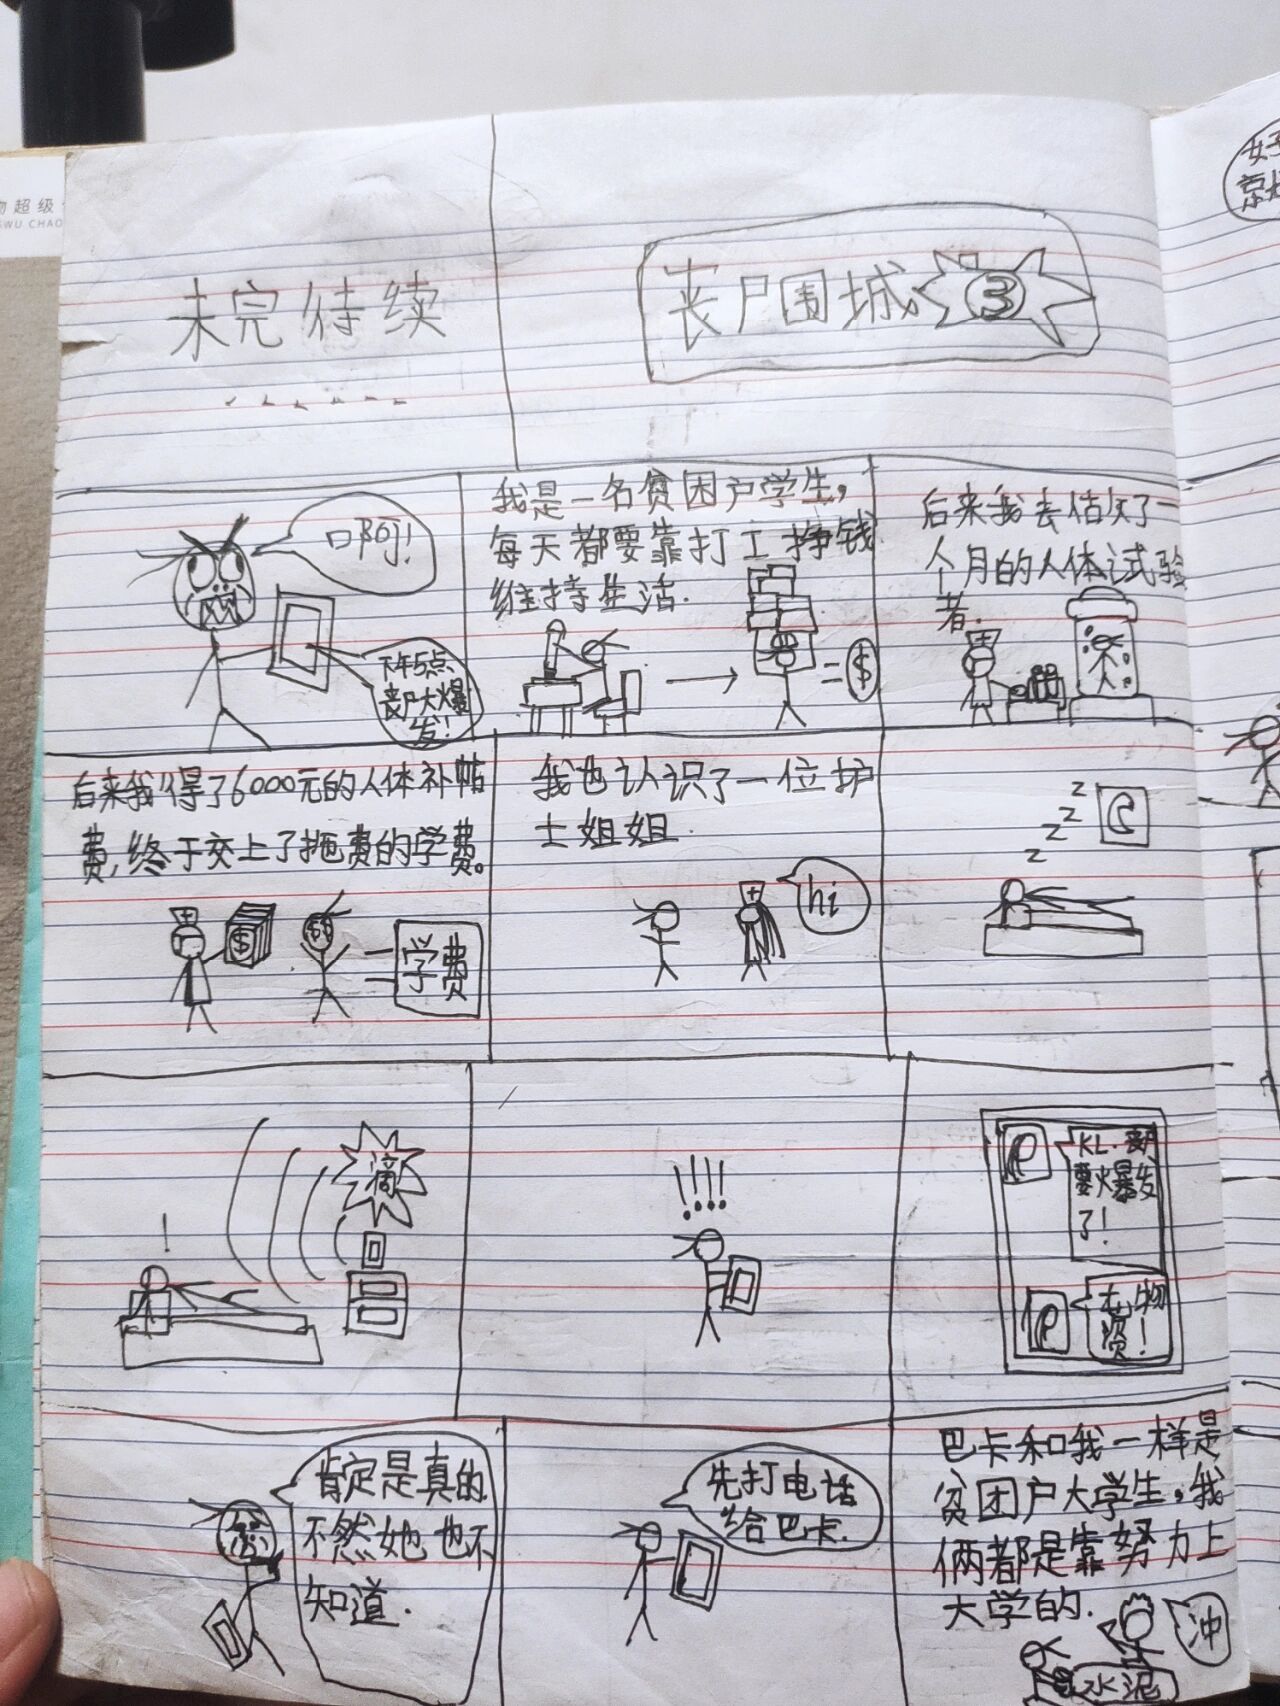 物超级
SWU CHAO
未完待续
......
丧尸围城
3
女子
啊!
下午5点
丧尸大爆
发!
我是一名贫困户学生,
每天都要靠打工挣钱
维持生活.
= $
后来我去
个月的人体试验
者.
后来我得了6000元的人体补帖
费,终于交上了拖费的学费。
$
$$
学费
我也认识了一位护
士姐姐
hi
z
z
z
z
!
滴
!!!!
KL.
要爆发
了!
物
资!
肯定是真的
不然她也不
知道.
先打电话
给巴卡.
巴卡和我一样是
贫困户大学生,我
俩都是靠努力上
大学的.
冲
水泥